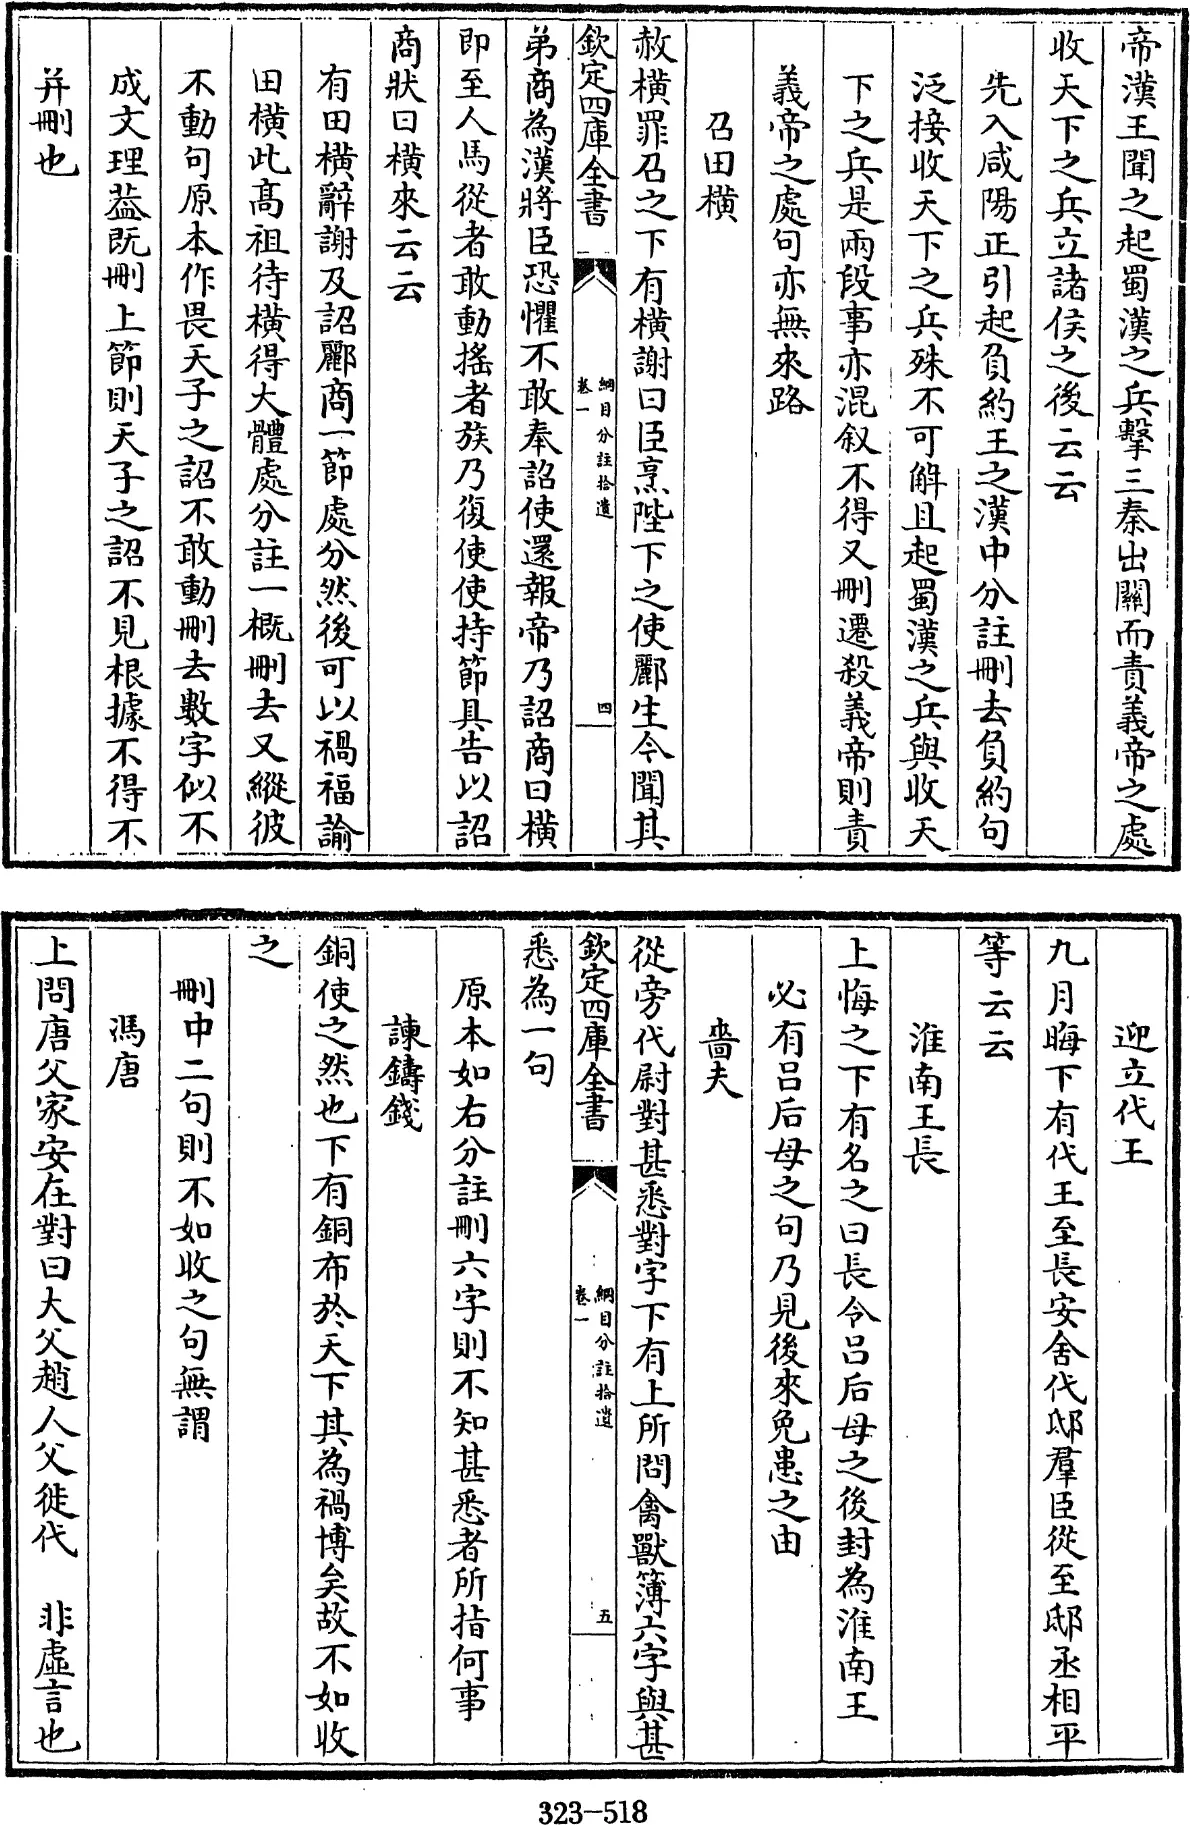 帝漢王聞之起蜀漢之兵擊三秦出關而責義帝之處
收天下之兵立諸侯之後云云
先入咸陽正引起負約王之漢中分註刪去負約句
泛接收天下之兵殊不可解且起蜀漢之兵與收天
下之兵是兩段事亦混叙不得又刪遷殺義帝則責
義帝之處句亦無來路
召田橫
赦橫罪召之下有橫謝曰臣烹陛下之使酈生今聞其
欽定四庫全書
綱目分註拾遺
卷一
四
弟商為漢將臣恐懼不敢奉詔使還報帝乃詔商曰橫
即至人馬從者敢動搖者族乃復使使持節具告以詔
商狀曰橫來云云
有田橫辭謝及詔酈商一節處分然後可以禍福諭
田橫此高祖待橫得大體處分註一概刪去又縱彼
不動句原本作畏天子之詔不敢動刪去數字似不
成文理葢既刪上節則天子之詔不見根據不得不
并刪也
迎立代王
九月晦下有代王至長安舍代邸羣臣從至邸丞相平
等云云
淮南王長
上悔之下有名之曰長令吕后母之後封為淮南王
必有吕后母之句乃見後來免患之由
嗇夫
從旁代尉對甚悉對字下有上所問禽獸簿六字與甚
欽定四庫全書
綱目分註拾遺
卷一
五
悉為一句
原本如右分註刪六字則不知甚悉者所指何事
諫鑄錢
銅使之然也下有銅布於天下其為禍博矣故不如收
之
刪中二句則不如收之句無謂
馮唐
上問唐父家安在對曰大父趙人父徙代　非虛言也
323-518